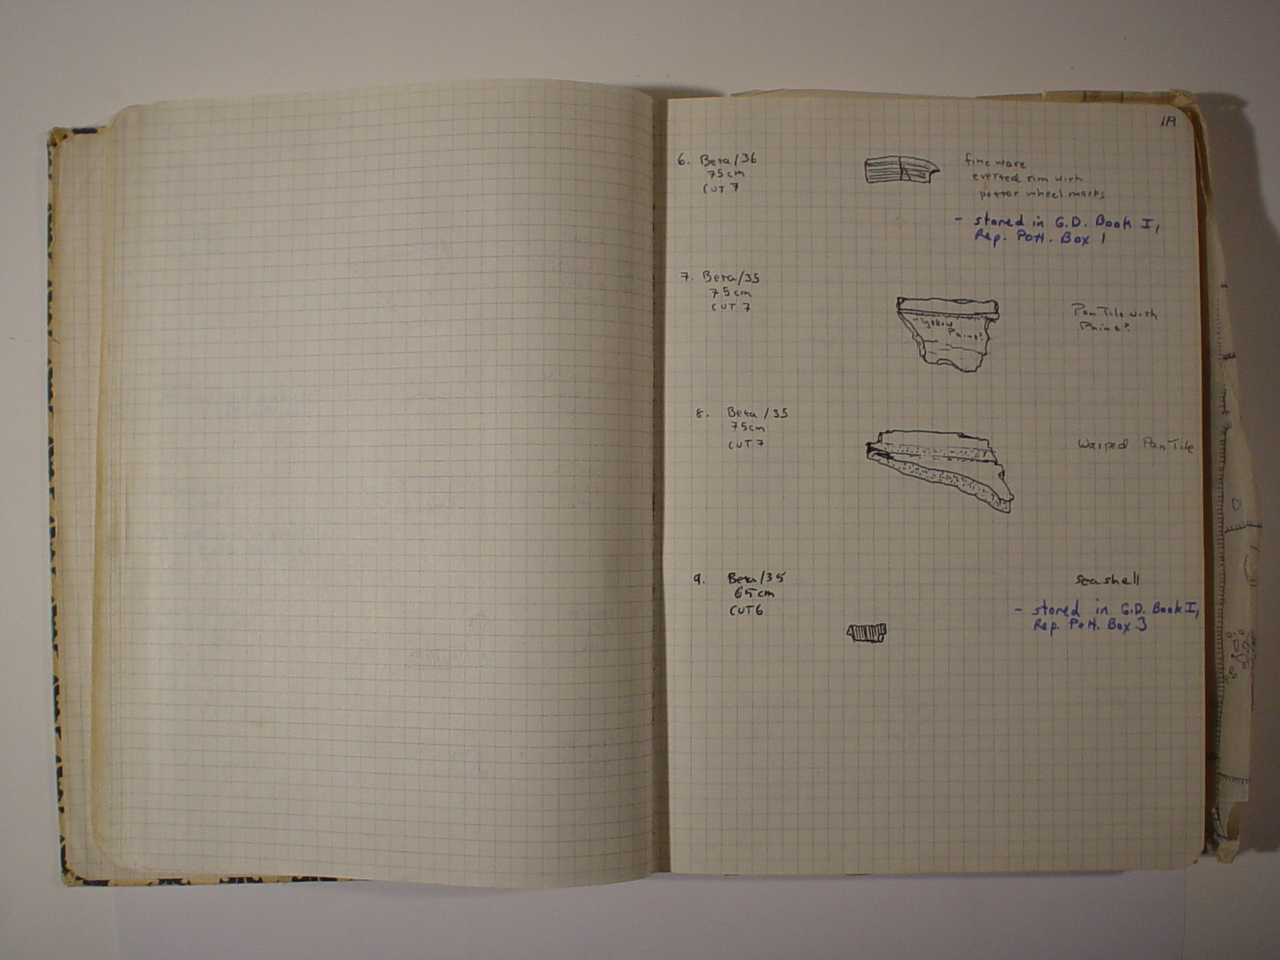 119
6. Beta/36
75cm
CUT 7
fine ware
everted rim with
potter wheel marks
- stored in G.D. Book I,
Rep. Pott. Box 1
7. Beta/35
75cm
CUT 7
Yellow
Paint?
Pan Tile with
Paint?
8. Beta/35
75cm
CUT 7
Warped Pan Tile
9. Beta/35
65cm
CUT 6
sea shell
- stored in G.D. Book I,
Rep. Pott. Box 3